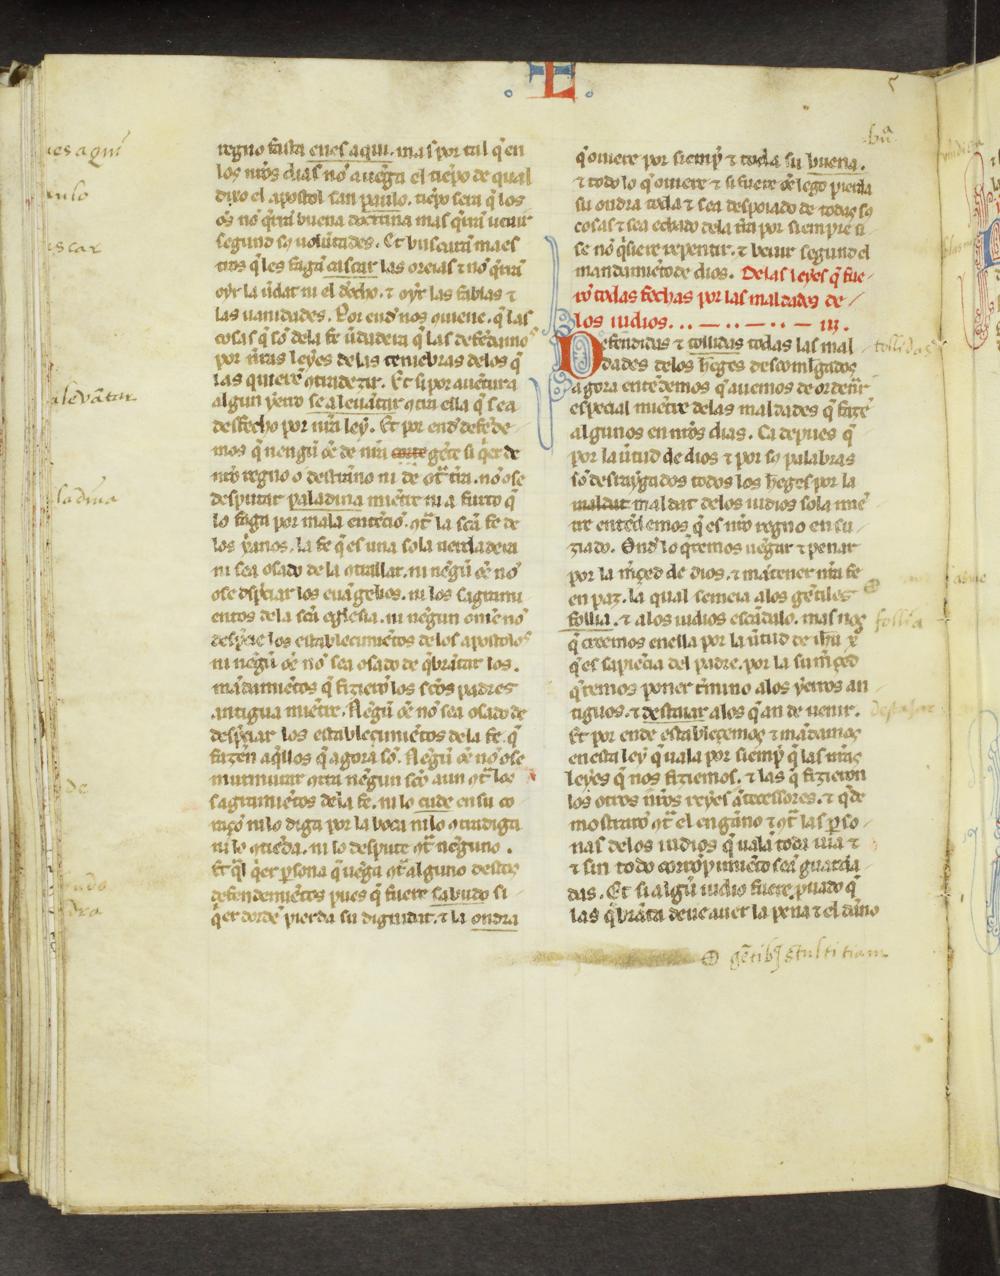 L
regno fasta en es aqui. mas por tal q̃ en
los nr̃os dias no auẽga el tiẽpo de qual
dixo el apostol san paulo. tiẽpo sera q̃ los
oẽs no q̃rrã buena doctrina mas q̃rrã ueuir
segund sꝯ volũtades. Et buscarã maes
tros q̃ les fagã cascar las oreias ⁊ no q̃rrã
oyr la ũdat ni el dr̃cho. ⁊ oyr las fablas ⁊
las uanidades. Por endꝰ nos ꝯuiene. q̃ las
cosas q̃ sõ dela fe ũdadera q̃ las defẽdamꝰ
por nr̃as leyes delas teniebras delos q̃
las quierẽ ꝯtradezir. Et si por auẽtura
algun yerro se aleuãtar ꝯtra ella q̃ sea
desfecho por nr̃a ley. Et por endꝰ defẽde
mos q̃ nengũ oẽ de nr̃a corte gẽte si q̃er de
nr̃o regno o destrãno ni de ot̃ tr̃a. no ose
desputar paladina miẽtre ni a furto q̃
lo faga por mala entẽciõ. ꝯt̃ la scã fe de
los xp̃anos. la fe q̃ es una sola uerdadera
ni sea osado de la ꝯtrallar. ni nẽgũ oẽ no
ose desp̃ciar los euãgelios. ni los sagrami
entos dela scã eglesia. ni nẽgun ome no
desp̃cie los establecimiẽtos delos apostolos
ni nẽgũ oẽ no sea osado de q̃brãtar los.
mãdamiẽtos q̃ fizierõ los scõs padres
antigua miẽtre. Nẽgũ oẽ no sea osado de
desp̃ciar los establecimiẽtos dela fe. q̃
fazen aq̃llos q̃ agora sõ. Nẽgũ oẽ no ose
murmurar ꝯtra nẽgun scõ aun ꝯt̃ los
sagramiẽtos dela fe. ni lo cude en su co
raçõ ni lo diga por la boca ni lo ꝯtradiga
ni lo ꝯtiẽda. ni lo despute ꝯt̃ nẽguno.
Et q̃l q̃er ꝑsona q̃ uẽga ꝯt̃ alguno destos
defendemiẽtos pues q̃ fuere sabudo si
q̃er dordẽ pierda su dignidat. ⁊ la ondra
q̃ ouiere por siemp̃ ⁊ toda su buena.
⁊ todo lo q̃ ouiere ⁊ si fuere oẽ lego pierda
su ondra toda ⁊ sea despoiado de todas sꝯ
cosas ⁊ sea echado dela tr̃a por siempre si
se no q̃siere repentir. ⁊ beuir segund el
mandamiẽto de dios. Delas leyes q̃ fue
rõ todas fechas por las maldades de
los iudios. iii.
Defendidas ⁊ tollidas todas las mal
dades delos hẽges descomlgados
agora entẽdemos q̃ auemos de ordenr̃
espeçial miẽtre delas maldades q̃ fazẽ
algunos en nr̃os dias. Ca depues q̃
por la ũtud de dios ⁊ por sꝯ palabras
sõ destruygados todos los hẽges por la
maldat maldat delos iudios sola miẽ
tre entẽdemos q̃ es nr̃o regno en su
ziado. Ondꝰ lo q̃remos uẽgar ⁊ penar
por la m̃çed de dios. ⁊ mãtener nr̃a fe
en paz. la qual semeia alos gẽtiles
follia. ⁊ alos iudios escãdalo. mas nos
q̃ creemos en ella por la ũtud de ih̃u xp̃o
q̃ es sapiẽcia del padre. por la su m̃çed
q̃remos poner t̃mino alos yerros an
tiguos. ⁊ destaiar alos q̃ an de uenir.
Et por ende establecemos ⁊ mãdamos
en esta ley q̃ uala por siemp̃ q̃ las nr̃as
leyes q̃ nos fiziemos. ⁊ las q̃ fizieron
los otros nr̃os reyes ãtecessores. ⁊ q̃ de
mostrarõ ꝯt̃ el engãno ⁊ ꝯt̃ las ꝑso
nas delos iudios q̃ ualã toda uia ⁊
⁊ sin todo corrõpimiẽto seã guarda
das. Et si algũ iudio fuere prouado q̃
las q̃brãta deue auer la pena ⁊ el dãno
es aqui
aulo
scar
alevãtar
ladina
de
udo
dra
bũa
tollidas
follia
destajar
gẽtibꝫ stultitiam